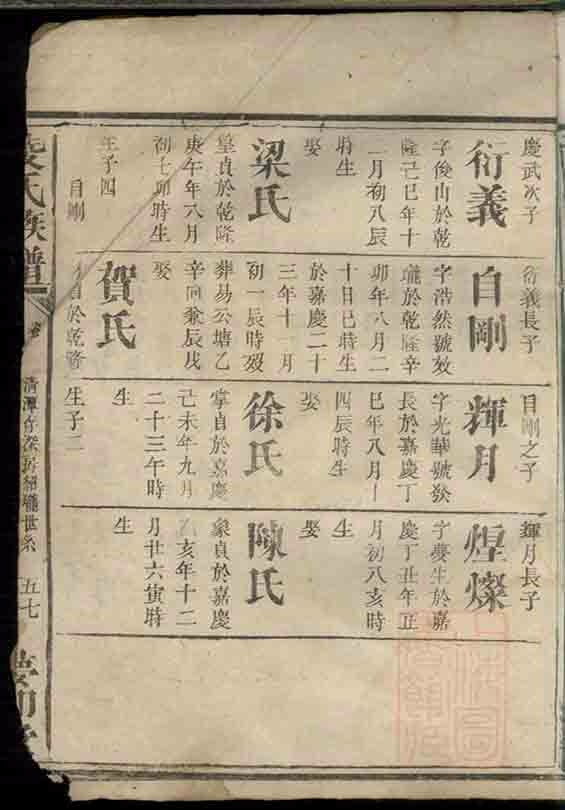 慶武次子
衍義
字俊山於乾
隆己巳年十
二月初八辰
時生
娶
梁氏
皇貞於乾隆
庚午年八月
初七卯時生
生子四
自剛
衍義長子
自剛
字浩然號效
瓏於乾隆辛
卯年八月二
十日巳時生
於嘉慶二十
三年十一月
初一辰時歿
葬易公塘乙
辛向兼辰戌
娶
賀氏
於乾隆
自剛之子
輝月
字光華號發
長於嘉慶丁
巳年八月
四辰時生
娶
徐氏
掌貞於嘉慶
己未年九月
二十三午時
生
生子二
輝月長子
煌燦
字夢生於嘉
慶丁丑年正
月初八亥時
生
娶
陳氏
象貞於嘉慶
乙亥年十二
月廿六寅時
生
氏族譜
清潭
世系
五七